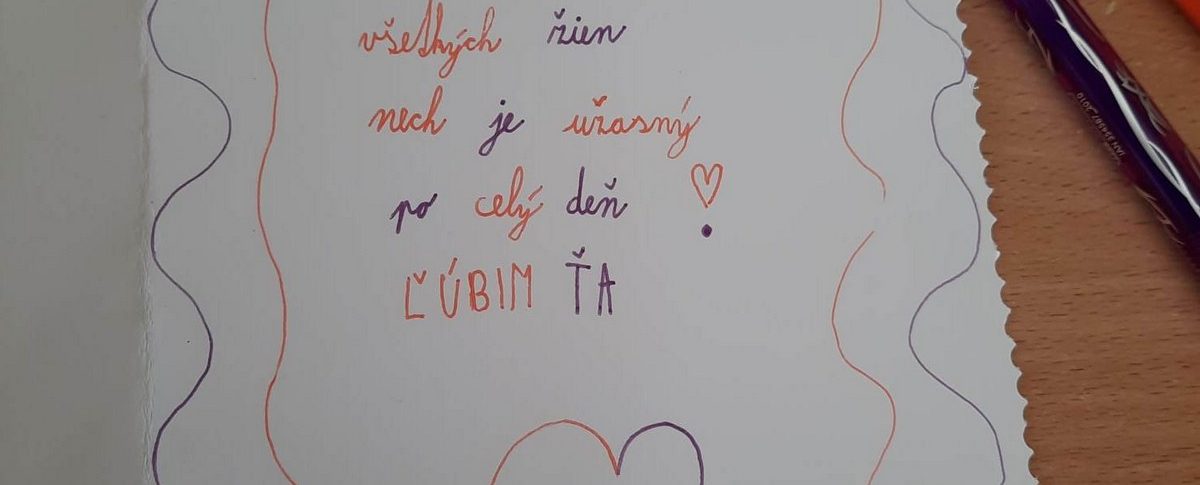 všetkých žien
nech je úžasný
po celý deň
ĽÚBIM ŤA